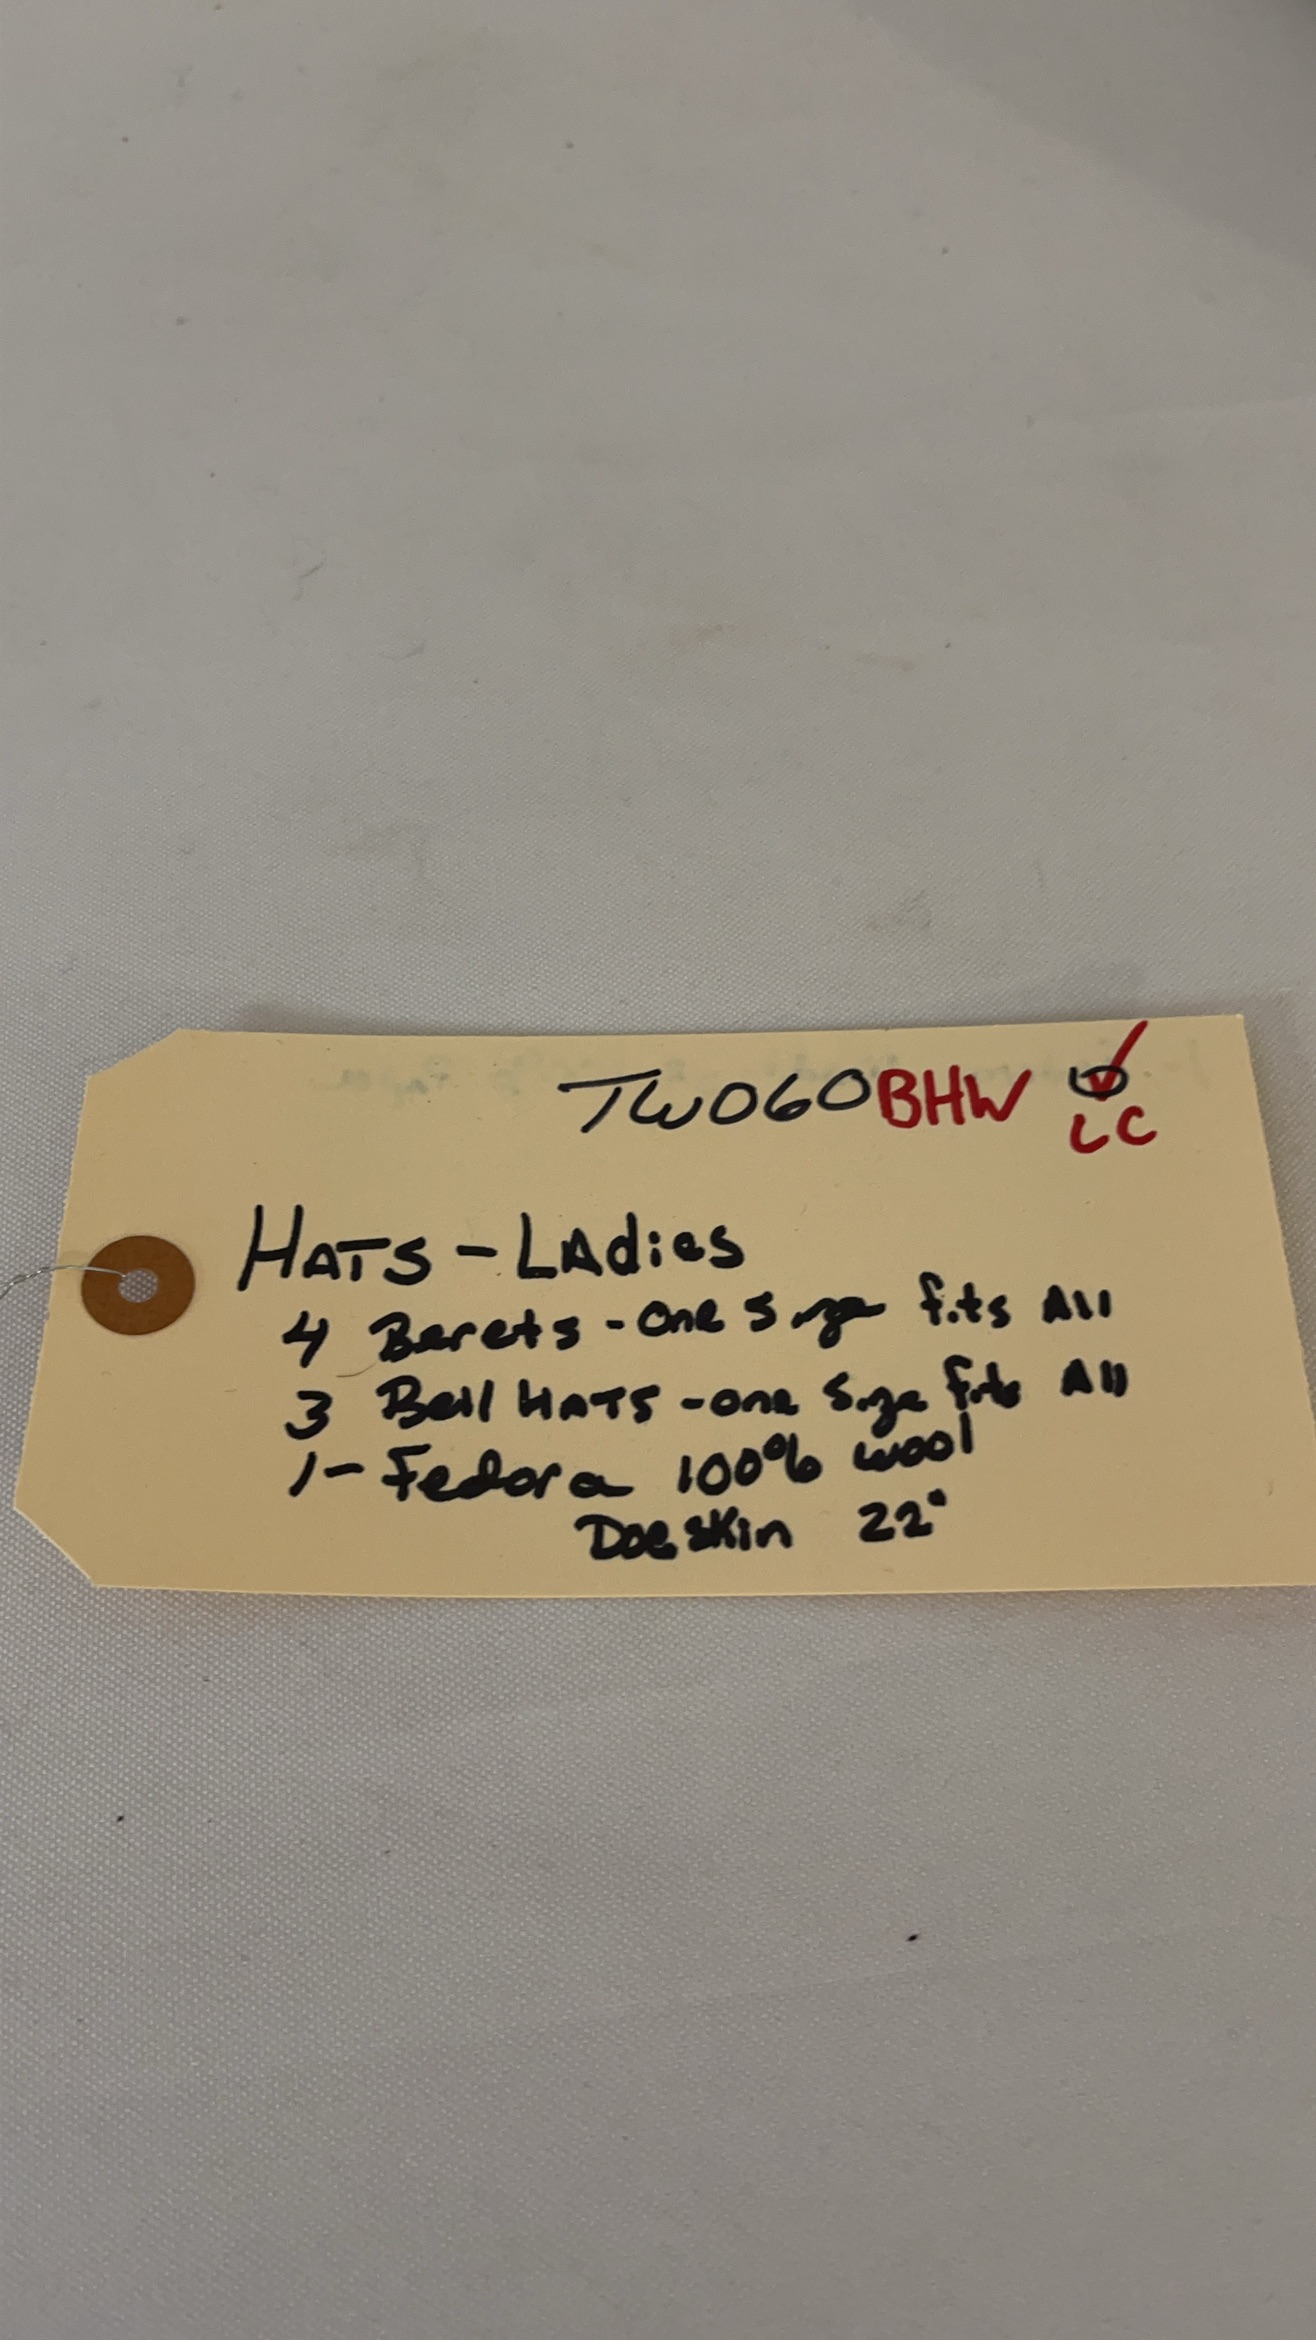 TW060BHW ✓
LC
HATS - LAdies
4 Berets - one Size fits All
3 Bell HATS - one Size fits All
1 - Fedora 100% wool
Doeskin 22"